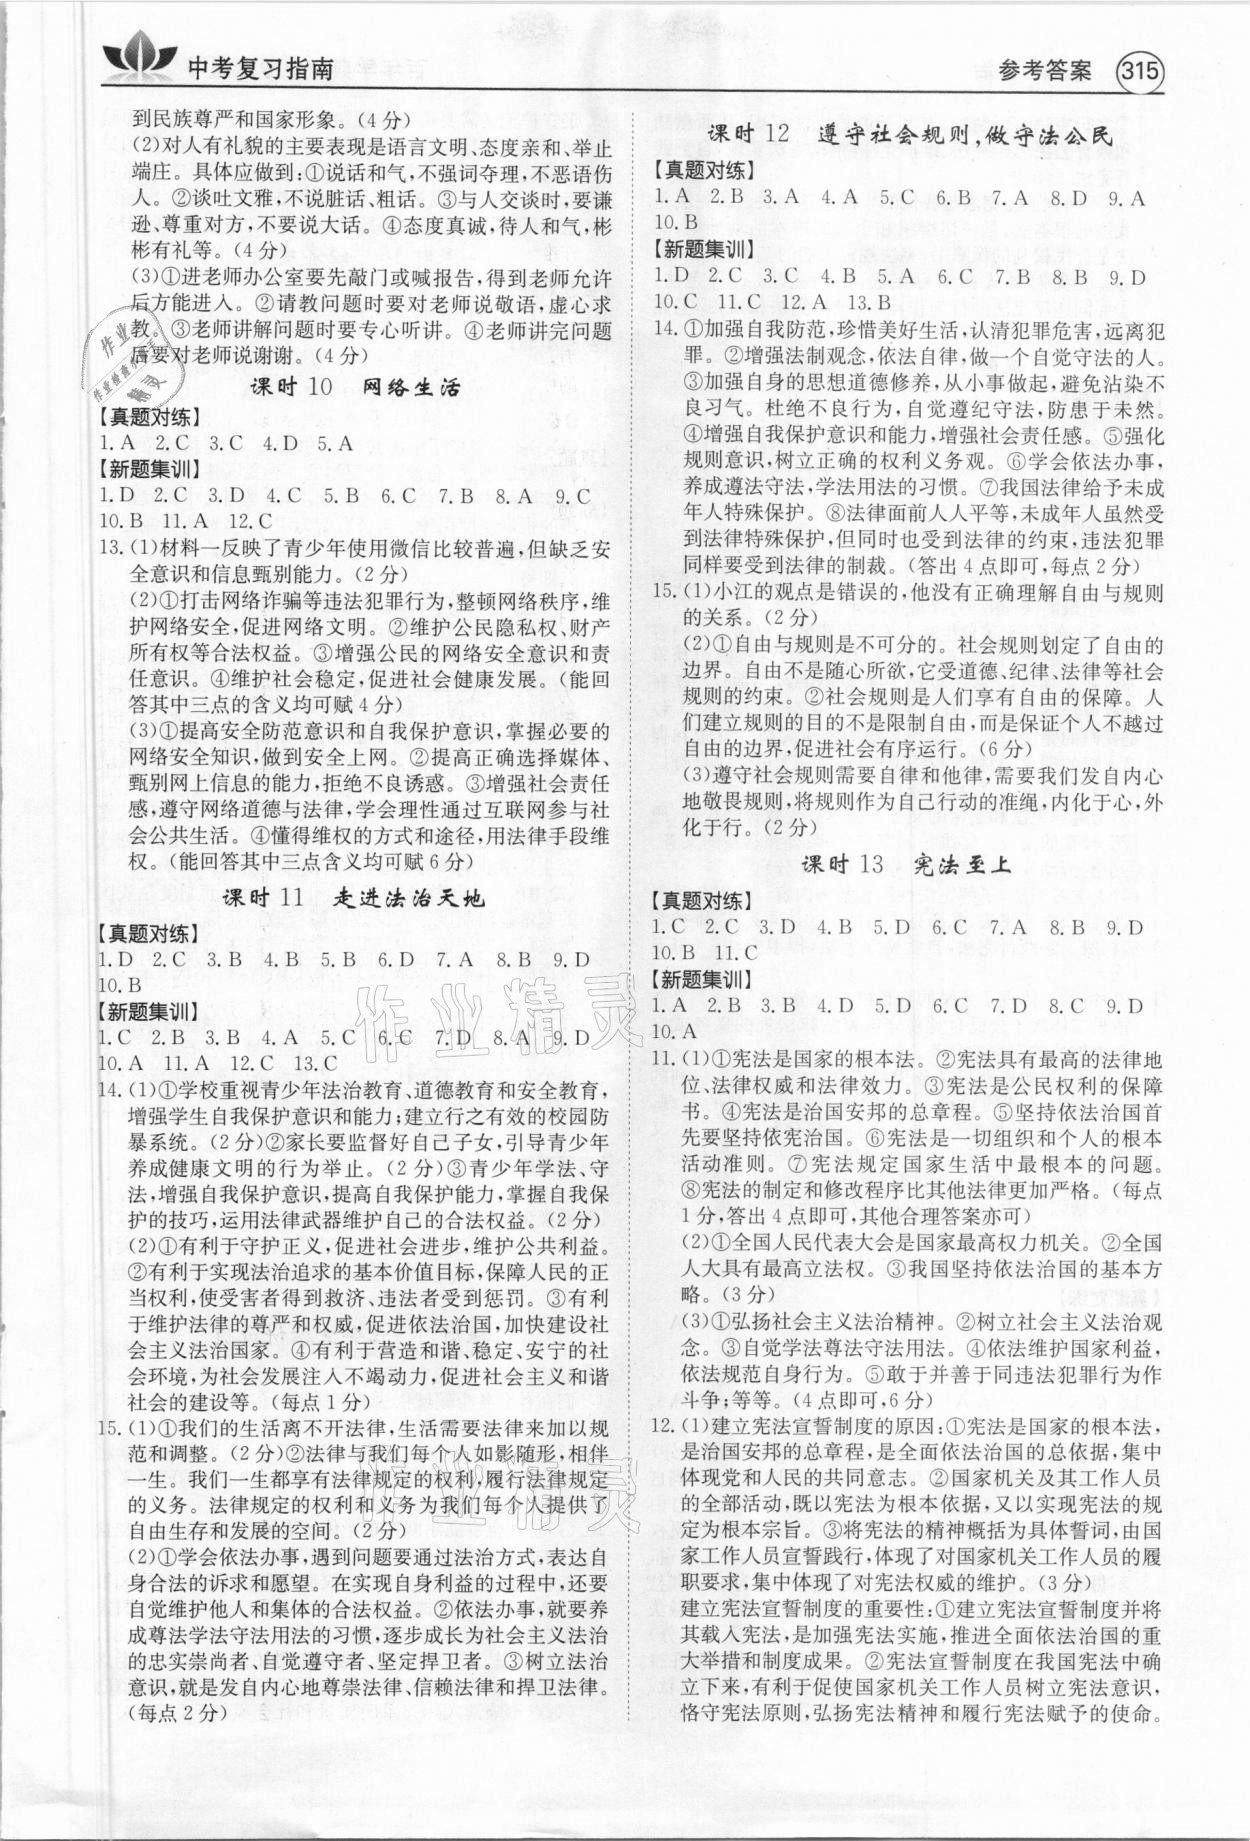 中考复习指南
参考答案 315
到民族尊严和国家形象。(4分)
(2)对人有礼貌的主要表现是语言文明、态度亲和、举止
端庄。具体应做到:①说话和气,不强词夺理,不恶语伤
人。②谈吐文雅,不说脏话、粗话。③与人交谈时,要谦
逊、尊重对方,不要说大话。④态度真诚,待人和气,彬
彬有礼等。(4分)
(3)①进老师办公室要先敲门或喊报告,得到老师允许
后方能进入。②请教问题时要对老师说敬语,虚心求
教。③老师讲解问题时要专心听讲。④老师讲完问题
后要对老师说谢谢。(4分)
课时10 网络生活
【真题对练】
1.A 2.C 3.C 4.D 5.A
【新题集训】
1.D 2.C 3.D 4.C 5.B 6.C 7.B 8.A 9.C
10.B 11.A 12.C
13.(1)材料一反映了青少年使用微信比较普遍,但缺乏安
全意识和信息甄别能力。(2分)
(2)①打击网络诈骗等违法犯罪行为,整顿网络秩序,维
护网络安全,促进网络文明。②维护公民隐私权、财产
所有权等合法权益。③增强公民的网络安全意识和责
任意识。④维护社会稳定,促进社会健康发展。(能回
答其中三点的含义均可赋4分)
(3)①提高安全防范意识和自我保护意识,掌握必要的
网络安全知识,做到安全上网。②提高正确选择媒体、
甄别网上信息的能力,拒绝不良诱惑。③增强社会责任
感,遵守网络道德与法律,学会理性通过互联网参与社
会公共生活。④懂得维权的方式和途径,用法律手段维
权。(能回答其中三点含义均可赋6分)
课时11 走进法治天地
【真题对练】
1.D 2.C 3.B 4.B 5.B 6.D 7.A 8.B 9.D
10.B
【新题集训】
1.C 2.B 3.B 4.A 5.C 6.C 7.D 8.A 9.D
10.A 11.A 12.C 13.C
14.(1)①学校重视青少年法治教育、道德教育和安全教育,
增强学生自我保护意识和能力;建立行之有效的校园防
暴系统。(2分)②家长要监督好自己子女,引导青少年
养成健康文明的行为举止。(2分)③青少年学法、守
法,增强自我保护意识,提高自我保护能力,掌握自我保
护的技巧,运用法律武器维护自己的合法权益。(2分)
(2)①有利于守护正义,促进社会进步,维护公共利益。
②有利于实现法治追求的基本价值目标,保障人民的正
当权利,使受害者得到救济、违法者受到惩罚。③有利
于维护法律的尊严和权威,促进依法治国,加快建设社
会主义法治国家。④有利于营造和谐、稳定、安宁的社
会环境,为社会发展注入不竭动力,促进社会主义和谐
社会的建设等。(每点1分)
15.(1)①我们的生活离不开法律,生活需要法律来加以规
范和调整。(2分)②法律与我们每个人如影随形,相伴
一生。我们一生都享有法律规定的权利,履行法律规定
的义务。法律规定的权利和义务为我们每个人提供了
自由生存和发展的空间。(2分)
(2)①学会依法办事,遇到问题要通过法治方式,表达自
身合法的诉求和愿望。在实现自身利益的过程中,还要
自觉维护他人和集体的合法权益。②依法办事,就要养
成尊法学法守法用法的习惯,逐步成长为社会主义法治
的忠实崇尚者、自觉遵守者、坚定捍卫者。③树立法治
意识,就是发自内心地尊崇法律、信赖法律和捍卫法律。
(每点2分)
课时12 遵守社会规则,做守法公民
【真题对练】
1.A 2.B 3.A 4.A 5.C 6.B 7.A 8.D 9.A
10.B
【新题集训】
1.D 2.C 3.C 4.B 5.A 6.C 7.D 8.B 9.D
10.C 11.C 12.A 13.B
14.①加强自我防范,珍惜美好生活,认清犯罪危害,远离犯
罪。②增强法制观念,依法自律,做一个自觉守法的人。
③加强自身的思想道德修养,从小事做起,避免沾染不
良习气。杜绝不良行为,自觉遵纪守法,防患于未然。
④增强自我保护意识和能力,增强社会责任感。⑤强化
规则意识,树立正确的权利义务观。⑥学会依法办事,
养成遵法守法,学法用法的习惯。⑦我国法律给予未成
年人特殊保护。⑧法律面前人人平等,未成年人虽然受
到法律特殊保护,但同时也受到法律的约束,违法犯罪
同样要受到法律的制裁。(答出4点即可,每点2分)
15.(1)小江的观点是错误的,他没有正确理解自由与规则
的关系。(2分)
(2)①自由与规则是不可分的。社会规则划定了自由的
边界。自由不是随心所欲,它受道德、纪律、法律等社会
规则的约束。②社会规则是人们享有自由的保障。人
们建立规则的目的不是限制自由,而是保证个人不越过
自由的边界,促进社会有序运行。(6分)
(3)遵守社会规则需要自律和他律,需要我们发自内心
地敬畏规则,将规则作为自己行动的准绳,内化于心,外
化于行。(2分)
课时13 宪法至上
【真题对练】
1.C 2.C 3.D 4.B 5.D 6.C 7.A 8.B 9.D
10.B 11.C
【新题集训】
1.A 2.B 3.B 4.D 5.D 6.C 7.D 8.C 9.D
10.A
11.(1)①宪法是国家的根本法。②宪法具有最高的法律地
位、法律权威和法律效力。③宪法是公民权利的保障
书。④宪法是治国安邦的总章程。⑤坚持依法治国首
先要坚持依宪治国。⑥宪法是一切组织和个人的根本
活动准则。⑦宪法规定国家生活中最根本的问题。
⑧宪法的制定和修改程序比其他法律更加严格。(每点
1分,答出4点即可,其他合理答案亦可)
(2)①全国人民代表大会是国家最高权力机关。②全国
人大具有最高立法权。③我国坚持依法治国的基本方
略。(3分)
(3)①弘扬社会主义法治精神。②树立社会主义法治观
念。③自觉学法尊法守法用法。④依法维护国家利益,
依法规范自身行为。⑤敢于并善于同违法犯罪行为作
斗争;等等。(4点即可,6分)
12.(1)建立宪法宣誓制度的原因:①宪法是国家的根本法,
是治国安邦的总章程,是全面依法治国的总依据,集中
体现党和人民的共同意志。②国家机关及其工作人员
的全部活动,既以宪法为根本依据,又以实现宪法的规
定为根本宗旨。③将宪法的精神概括为具体誓词,由国
家工作人员宣誓践行,体现了对国家机关工作人员的履
职要求,集中体现了对宪法权威的维护。(3分)
建立宪法宣誓制度的重要性:①建立宪法宣誓制度并将
其载入宪法,是加强宪法实施,推进全面依法治国的重
大举措和制度成果。②宪法宣誓制度在我国宪法中确
立下来,有利于促使国家机关工作人员树立宪法意识,
恪守宪法原则,弘扬宪法精神和履行宪法赋予的使命。
作业精灵
作业精灵